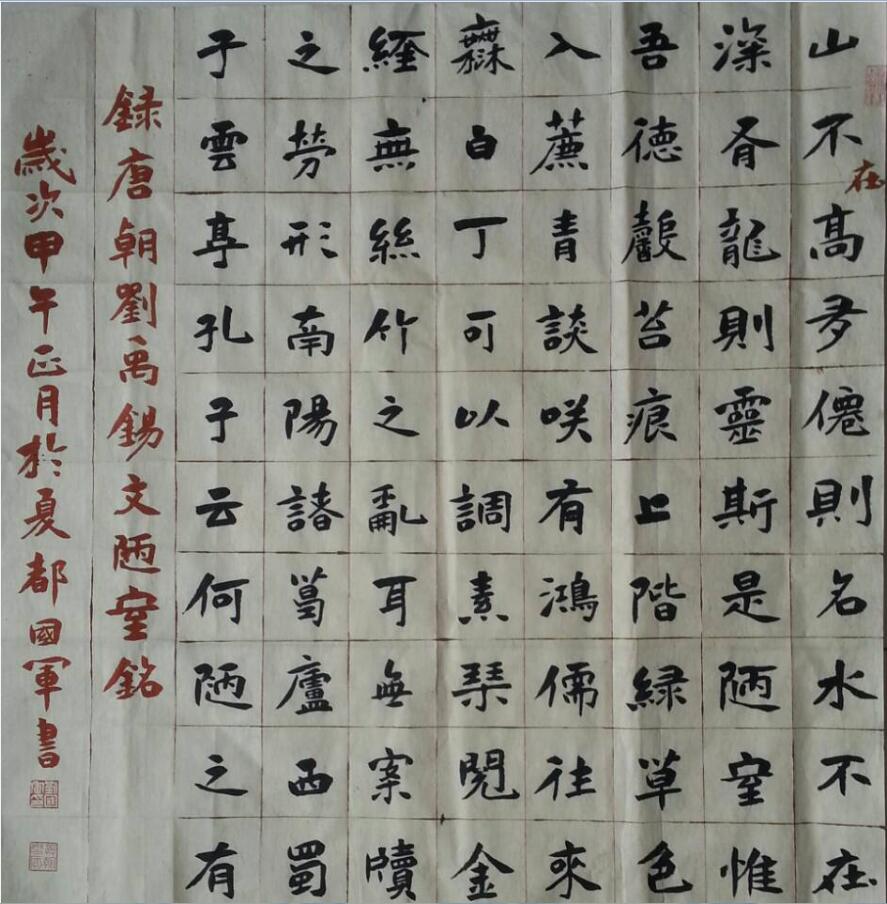 山不在高有僊則名水不在
深有龍則靈斯是陋室惟
吾德馨苔痕上階緑草色
入簾青談咲有鴻儒往來
無白丁可以調素琴閱金
經無絲竹之亂耳無案牘
之勞形南陽諸葛廬西蜀
子雲亭孔子云何陋之有
録唐朝劉禹錫文陋室銘
歲次甲午正月於夏都國軍書